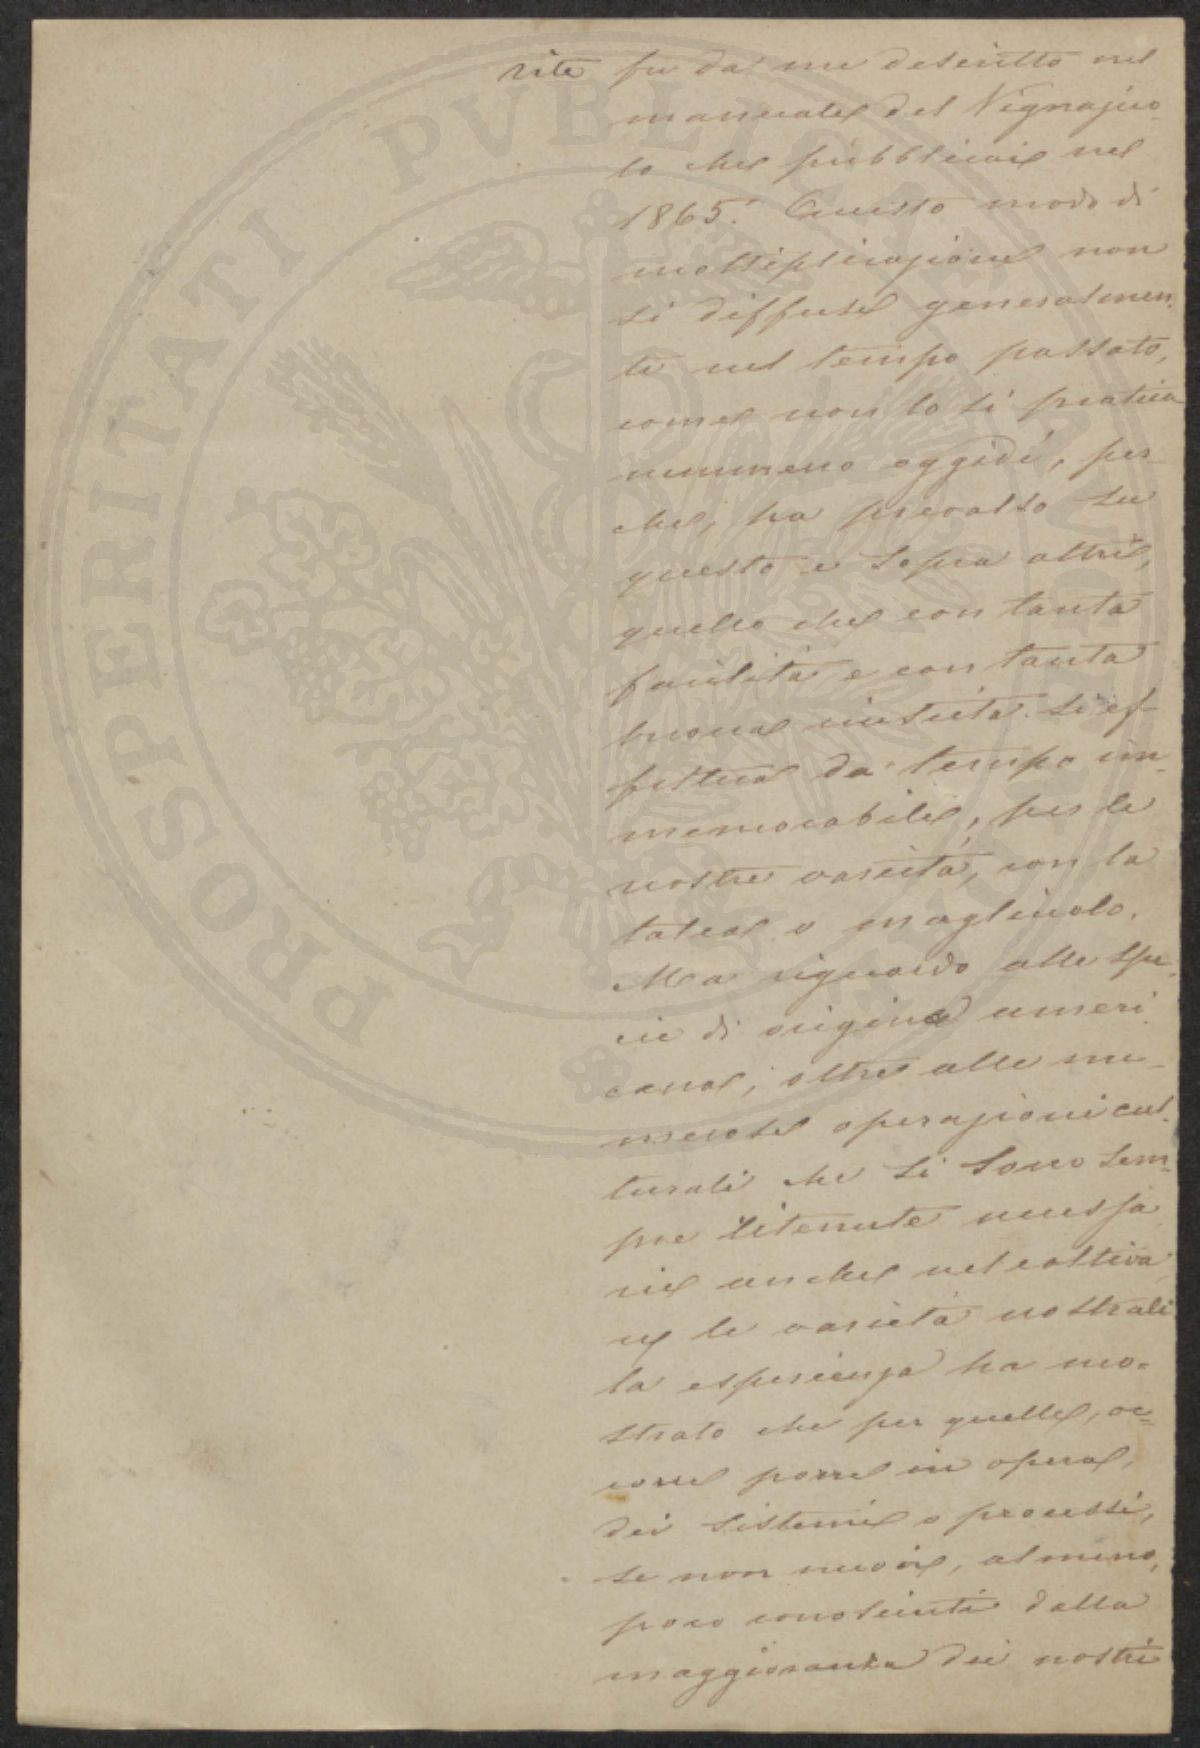 vite fu da me descritto nel
manuale del Vignajuo-
lo che pubblicai nel
1865. Questo modo di
moltiplicazione non
si diffuse generalmen-
te nel tempo passato,
come non lo si pratica
nemmeno oggidì, per-
che, ha prevalso su
questo e sopra altri,
quello che con tanta
facilità e con tanta
buona riuscita si ef-
fettua da tempo im-
memorabile, per le
nostre varietà, con la
talea o magliuolo.
Ma riguardo alle spe-
cie di origine ameri-
cana, oltre alle nu-
merose operazioni cul-
turali che si sono sem-
pre ritenute necessa-
rie anche nel coltiva-
re le varietà nostrali
la esperienza ha mo-
strato che per quelle, oc-
corre porre in opera,
dei sistemi o processi,
se non nuovi, almeno,
poco conosciuti dalla
maggioranza dei nostri
PROSPERITATI PVBLICAE